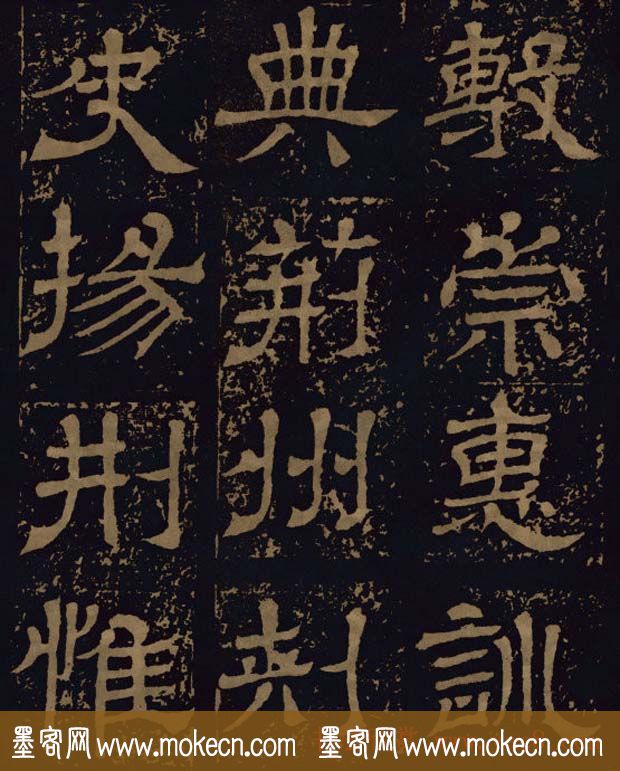 崇惠訓
典荆州刾
史揚刑惟
墨客网 www.mokecn.com 墨客网 www.mokecn.com